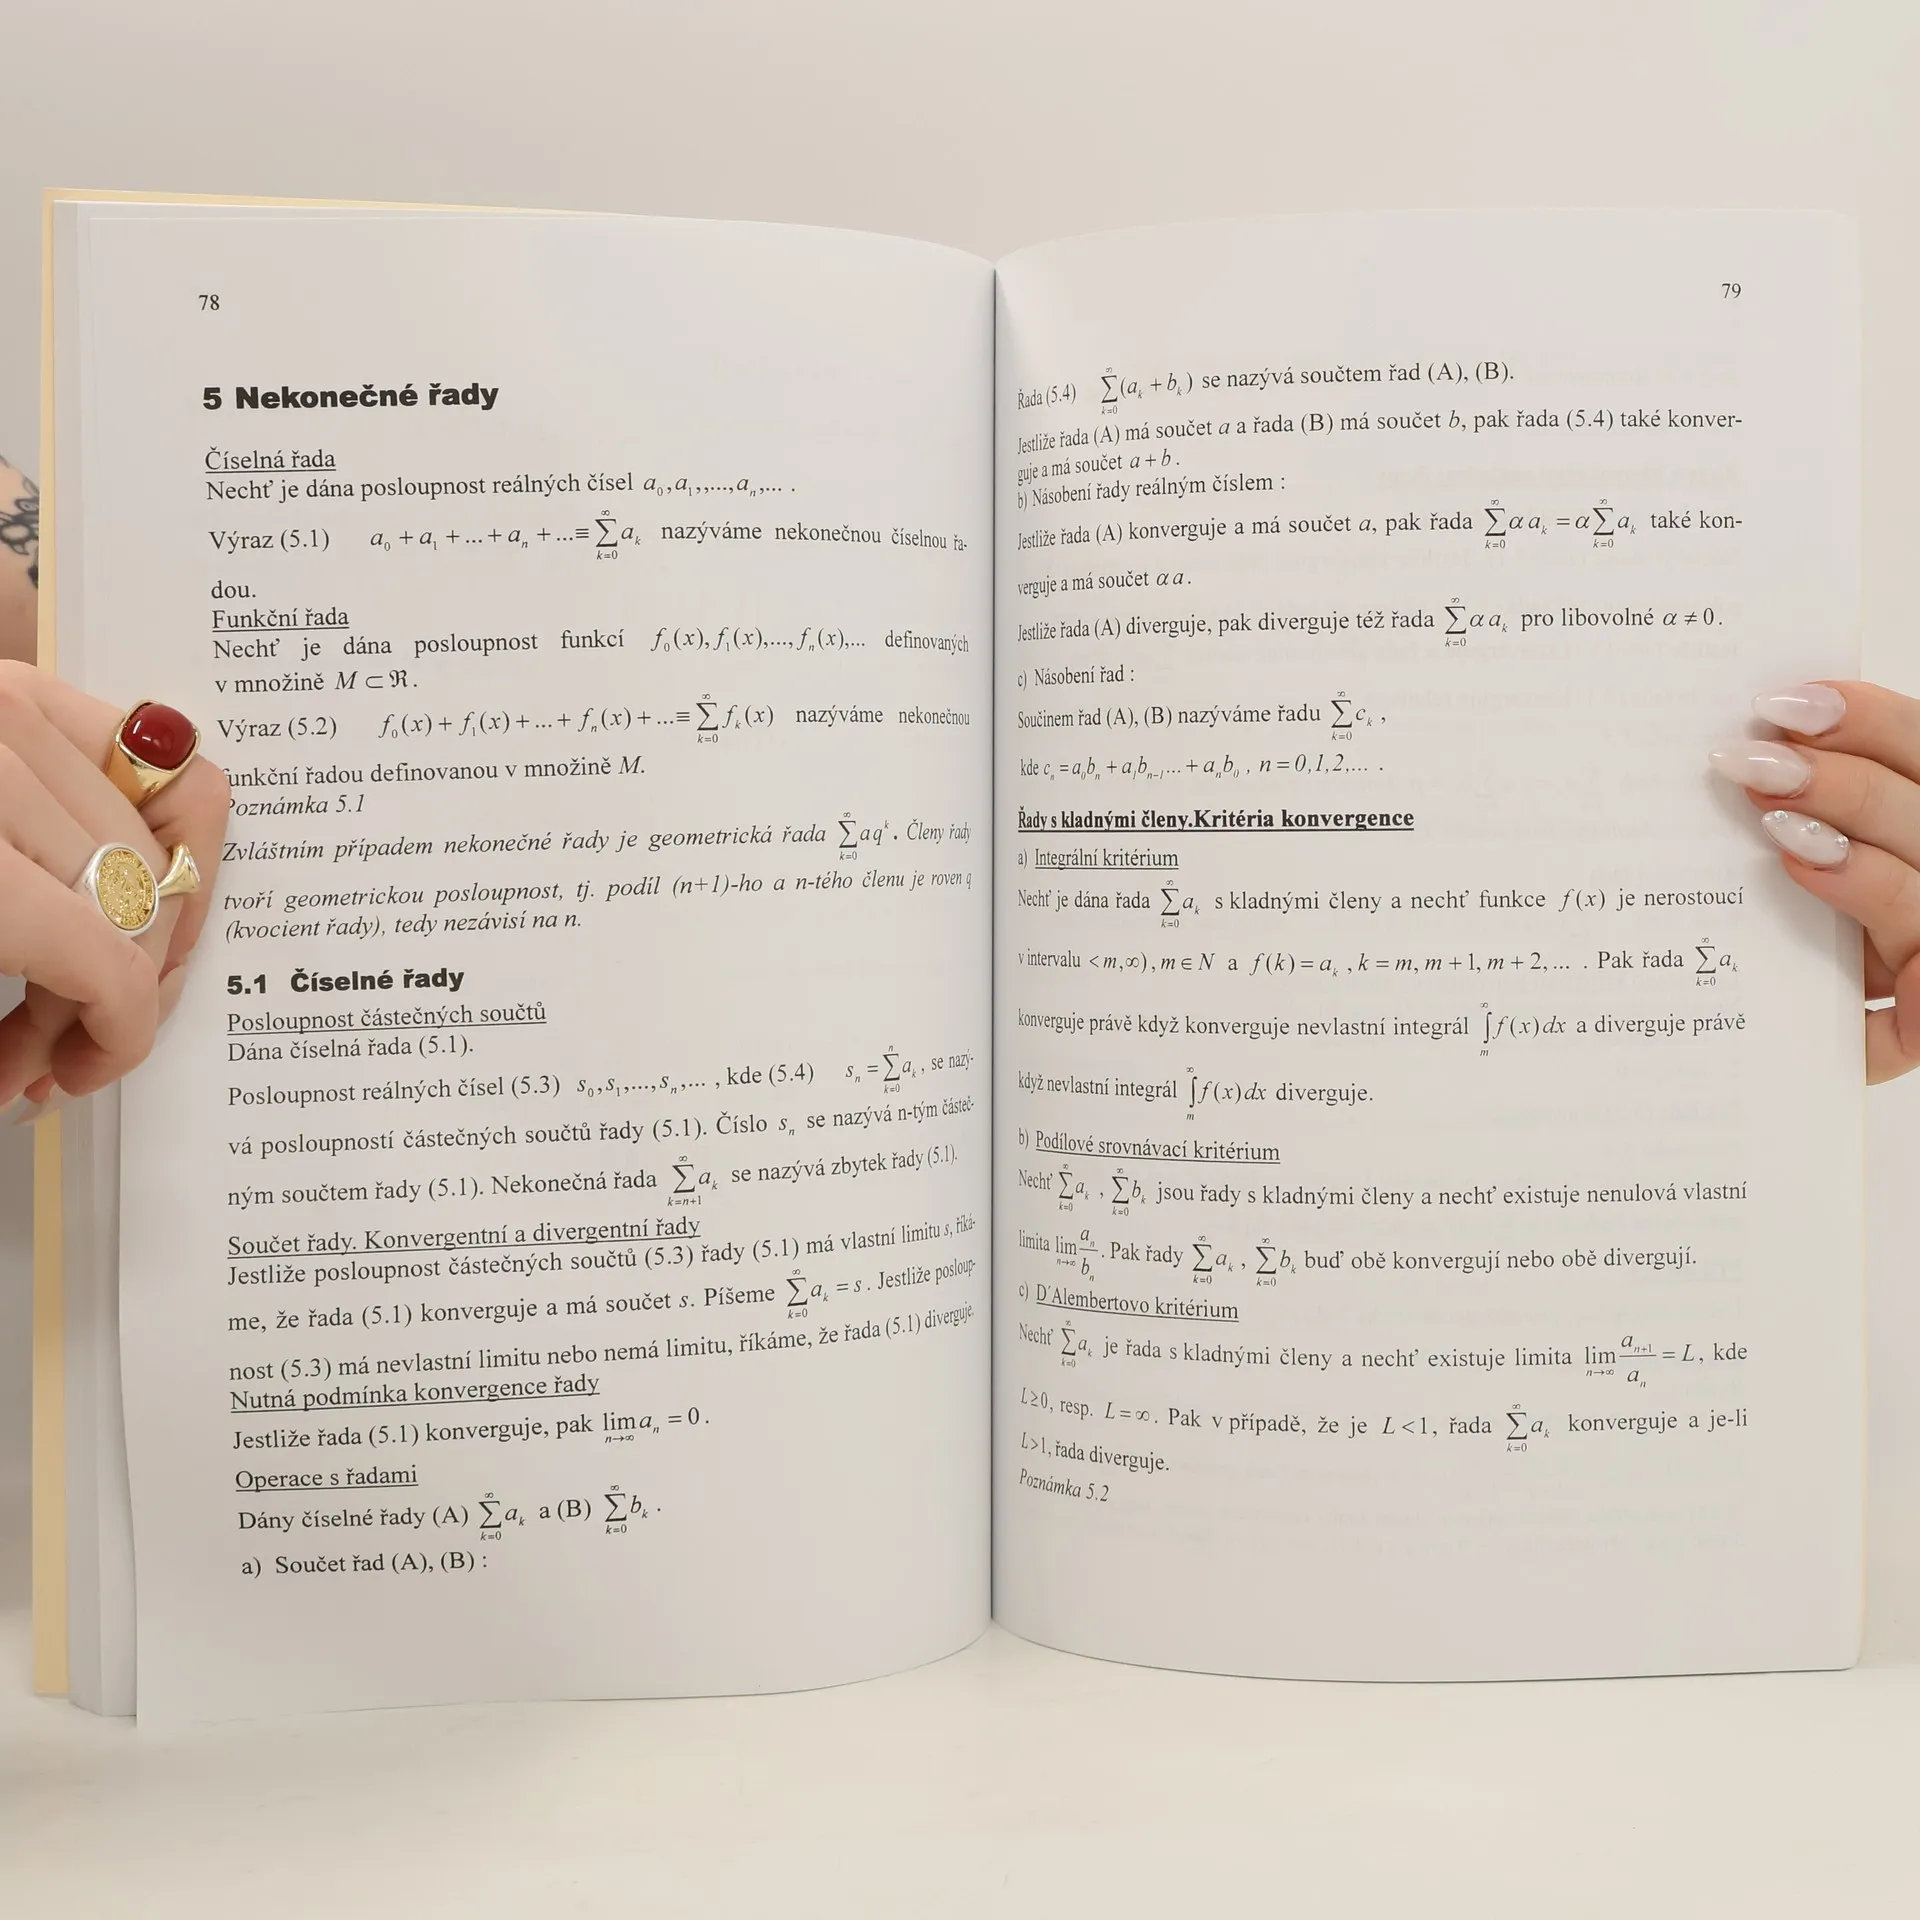 78
5 Nekonečné řady
Číselná řada
Nechť je dána posloupnost reálných čísel a₀,a₁,,...,aₙ,... .
Výraz (5.1) a₀ + a₁ + ... + aₙ + ... ≡ ∑_{k=0}^{∞} aₖ nazýváme nekonečnou číselnou řa-
dou.
Funkční řada
Nechť je dána posloupnost funkcí f₀(x), f₁(x),..., fₙ(x),... definovaných
v množině M ⊂ ℜ.
Výraz (5.2) f₀(x) + f₁(x) + ... + fₙ(x) + ... ≡ ∑_{k=0}^{∞} fₖ(x) nazýváme nekonečnou
funkční řadou definovanou v množině M.
Poznámka 5.1
Zvláštním případem nekonečné řady je geometrická řada ∑_{k=0}^{∞} a qᵏ. Členy řady
tvoří geometrickou posloupnost, tj. podíl (n+1)-ho a n-tého členu je roven q
(kvocient řady), tedy nezávisí na n.
5.1 Číselné řady
Posloupnost částečných součtů
Dána číselná řada (5.1).
Posloupnost reálných čísel (5.3) s₀,s₁,...,sₙ,... , kde (5.4) sₙ = ∑_{k=0}^{n} aₖ , se nazý-
vá posloupností částečných součtů řady (5.1). Číslo sₙ se nazývá n-tým částeč-
ným součtem řady (5.1). Nekonečná řada ∑_{k=n+1}^{∞} aₖ se nazývá zbytek řady (5.1).
Součet řady. Konvergentní a divergentní řady
Jestliže posloupnost částečných součtů (5.3) řady (5.1) má vlastní limitu s, říká-
me, že řada (5.1) konverguje a má součet s. Píšeme ∑_{k=0}^{∞} aₖ = s. Jestliže posloup-
nost (5.3) má nevlastní limitu nebo nemá limitu, říkáme, že řada (5.1) diverguje.
Nutná podmínka konvergence řady
Jestliže řada (5.1) konverguje, pak lim_{n→∞} aₙ = 0.
Operace s řadami
Dány číselné řady (A) ∑_{k=0}^{∞} aₖ a (B) ∑_{k=0}^{∞} bₖ .
a) Součet řad (A), (B) :
79
Řada (5.4) ∑_{k=0}^{∞} (aₖ + bₖ) se nazývá součtem řad (A), (B).
Jestliže řada (A) má součet a a řada (B) má součet b, pak řada (5.4) také konver-
guje a má součet a + b.
b) Násobení řady reálným číslem :
Jestliže řada (A) konverguje a má součet a, pak řada ∑_{k=0}^{∞} α aₖ = α ∑_{k=0}^{∞} aₖ také kon-
verguje a má součet α a.
Jestliže řada (A) diverguje, pak diverguje též řada ∑_{k=0}^{∞} α aₖ pro libovolné α ≠ 0.
c) Násobení řad :
Součinem řad (A), (B) nazýváme řadu ∑_{k=0}^{∞} cₖ ,
kde cₙ = a₀bₙ + a₁bₙ₋₁... + aₙb₀ , n = 0,1,2,... .
Řady s kladnými členy.Kritéria konvergence
a) Integrální kritérium
Nechť je dána řada ∑_{k=0}^{∞} aₖ s kladnými členy a nechť funkce f(x) je nerostoucí
v intervalu <m,∞), m ∈ N a f(k) = aₖ , k = m, m+1, m+2, ... . Pak řada ∑_{k=0}^{∞} aₖ
konverguje právě když konverguje nevlastní integrál ∫_{m}^{∞} f(x)dx a diverguje právě
když nevlastní integrál ∫_{m}^{∞} f(x)dx diverguje.
b) Podílové srovnávací kritérium
Nechť ∑_{k=0}^{∞} aₖ , ∑_{k=0}^{∞} bₖ jsou řady s kladnými členy a nechť existuje nenulová vlastní
limita lim_{n→∞} aₙ/bₙ . Pak řady ∑_{k=0}^{∞} aₖ , ∑_{k=0}^{∞} bₖ buď obě konvergují nebo obě divergují.
c) D´Alembertovo kritérium
Nechť ∑_{k=0}^{∞} aₖ je řada s kladnými členy a nechť existuje limita lim_{n→∞} aₙ₊₁/aₙ = L, kde
L≥0, resp. L = ∞. Pak v případě, že je L < 1, řada ∑_{k=0}^{∞} aₖ konverguje a je-li
L>1, řada diverguje.
Poznámka 5.2